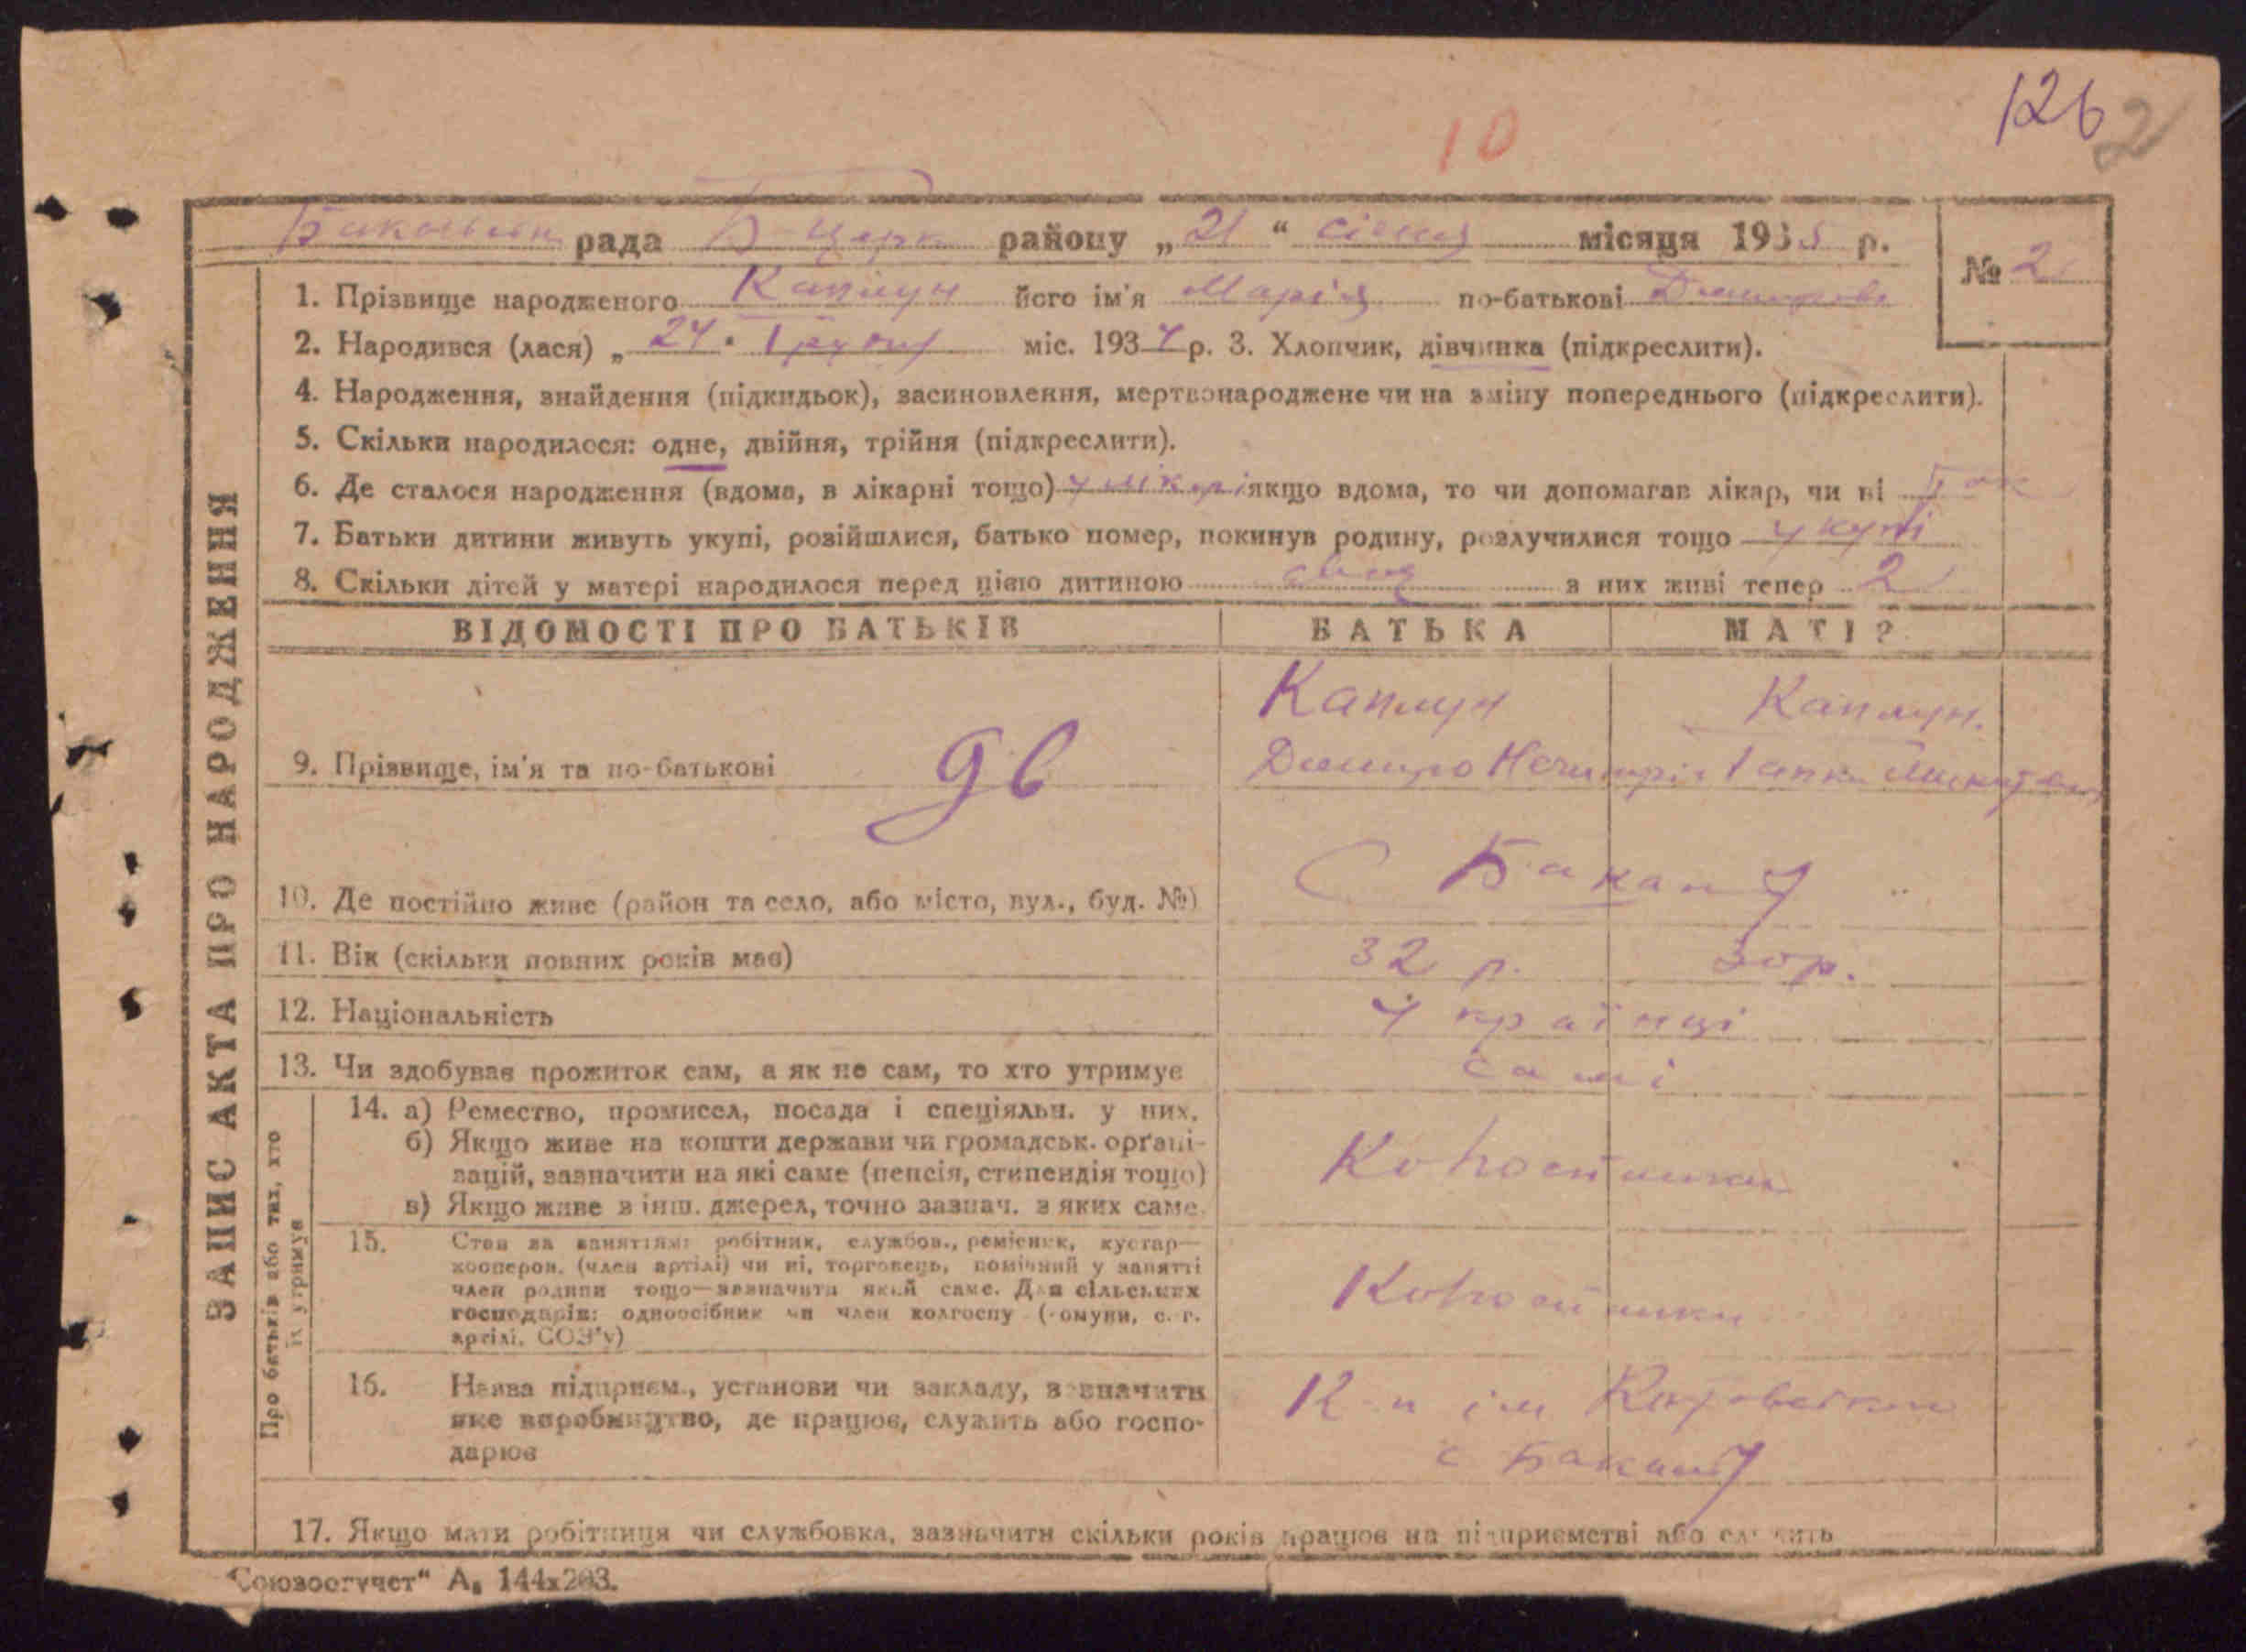 126 2
10
рада Б-церк району „21“ січня місяця 1935 р.
№ 2
1. Прізвище народженого Каплун його ім'я Марія по-батькові Дмитрова
2. Народився (лася) „24“ Грудня міс. 1934 р. 3. Хлопчик, дівчинка (підкреслити).
4. Народження, знайдення (підкидьок), засиновлення, мертвонароджене чи на зміну попереднього (підкреслити).
5. Скільки народилося: одне, двійня, трійня (підкреслити).
6. Де сталося народження (вдома, в лікарні тощо) якщо вдома, то чи допомагав лікар, чи ні
7. Батьки дитини живуть укупі, розійшлися, батько помер, покинув родину, розлучилися тощо укупі
8. Скільки дітей у матері народилося перед цією дитиною з них живі тепер 2
ЗАПИС АКТА ПРО НАРОДЖЕННЯ
ВІДОМОСТІ ПРО БАТЬКІВ БАТЬКА МАТІР
Каплун Каплун.
9. Прізвище, ім'я та по-батькові Дмитро
С Бакали
10. Де постійно живе (район та село, або місто, вул., буд. №)
11. Вік (скільки повних років має) 32 р. 30 р.
12. Національність Українці
13. Чи здобуває прожиток сам, а як не сам, то хто утримує самі
Про батьків або тих, хто їх утримує
14. а) Ремество, промисел, посада і спеціяльн. у них.
б) Якщо живе на кошти держави чи громадськ. орґані-
зацій, зазначити на які саме (пенсія, стипендія тощо)
в) Якщо живе з інш. джерел, точно зазнач. з яких саме.
15. Стан за заняттям: робітник, службов., ремісник, кустар—
кооперов. (член артілі) чи ні, торговець, помічний у занятті
член родини тощо—зазначити який саме. Для сільських
господарів: одноосібник чи член колгоспу (комуни, с. г.
артілі, СОЗ'у)
16. Назва підприєм., установи чи закладу, зазначити
яке виробництво, де працює, служить або госпо-
дарює
К-п ім
с
17. Якщо мати робітниця чи службовка, зазначити скільки років працює на підприємстві або служить
"Союзоргучет" А₅ 144х203.